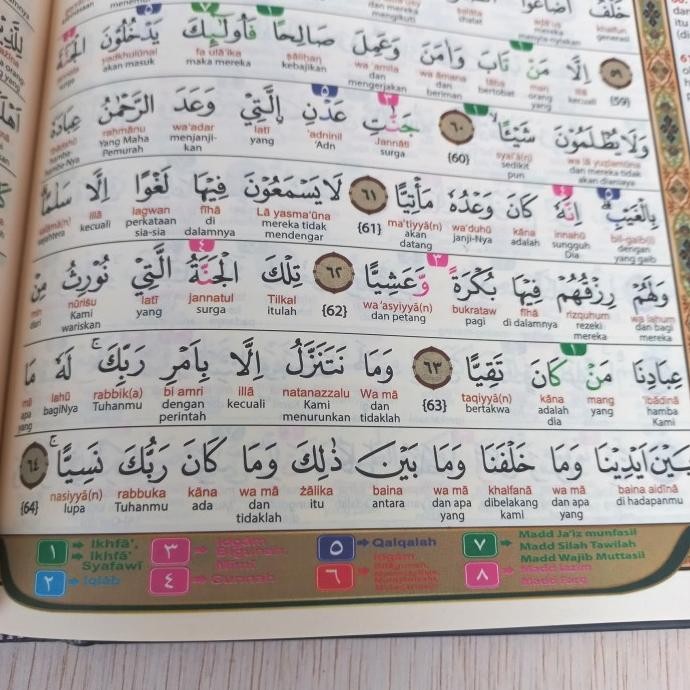 خَلْفٌ اَضَاعُوا
اِلَّا مَنْ تَابَ وَاٰمَنَ وَعَمِلَ صَالِحًا فَاُولٰۤىِٕكَ يَدْخُلُوْنَ الْجَنَّةَ
illā man tāba wa āmana wa ‘amila ṣāliḥan fa ulā'ika yadkhulūnal
kecuali orang yang bertobat dan beriman dan mengerjakan kebajikan maka mereka akan masuk
{59}
وَلَا يُظْلَمُوْنَ شَيْـًٔا ٦٠ جَنّٰتِ عَدْنِ ِۨالَّتِيْ وَعَدَ الرَّحْمٰنُ عِبَادَهٗ
wa lā yuẓlamūna syai'ā(n) {60} Jannāti 'adninil latī wa'adar raḥmānu
dan mereka tidak akan dianiaya sedikit pun surga 'Adn yang menjanji-kan Yang Maha Pemurah
بِالْغَيْبِۗ اِنَّهٗ كَانَ وَعْدُهٗ مَأْتِيًّا ٦١ لَا يَسْمَعُوْنَ فِيْهَا لَغْوًا اِلَّا سَلٰمًاۗ
bil-gaib(i) innahū kāna wa'duhū ma'tiyyā(n) {61} Lā yasma'ūna fīhā lagwan illā
dengan yang gaib sungguh Dia adalah janji-Nya akan datang mereka tidak mendengar di dalamnya perkataan sia-sia kecuali
وَلَهُمْ رِزْقُهُمْ فِيْهَا بُكْرَةً وَّعَشِيًّا ٦٢ تِلْكَ الْجَنَّةُ الَّتِيْ نُوْرِثُ مِنْ
wa lahum rizquhum fīhā bukrataw wa 'asyiyyā(n) {62} Tilkal jannatul latī nūriṡu min
dan bagi mereka rezeki mereka di dalamnya pagi dan petang itulah surga yang Kami wariskan dari
عِبَادِنَا مَنْ كَانَ تَقِيًّا ٦٣ وَمَا نَتَنَزَّلُ اِلَّا بِاَمْرِ رَبِّكَۚ لَهٗ مَا
'ibādinā mang kāna taqiyyā(n) {63} Wa mā natanazzalu illā bi amri rabbik(a) lahū mā
hamba Kami yang adalah dia bertakwa dan tidaklah Kami menurunkan kecuali dengan perintah Tuhanmu bagiNya apa yang
بَيْنَ اَيْدِيْنَا وَمَا خَلْفَنَا وَمَا بَيْنَ ذٰلِكَ وَمَا كَانَ رَبُّكَ نَسِيًّاۚ ٦٤
baina aidīnā wa mā khalfanā wa mā baina żālika wa mā kāna rabbuka nasiyyā(n) {64}
di hadapanmu dan apa yang dibelakang kami dan apa yang antara itu dan tidaklah ada Tuhanmu lupa
١ Ikhfā', Ikhfā' Syafawī
٢ Iqlāb
٣ Idgām Bigunnah, Mimi
٤ Gunnah
٥ Qalqalah
٦ Idgām
٧ Madd Jā'iz munfasil Madd Silah Tawilah Madd Wajib Muttasil
٨ Madd lazim Madd Farq